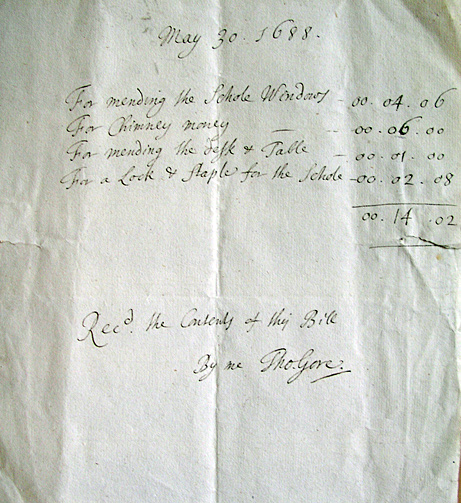 May 30. 1688.
For mending the Schole Windows - 00. 04. 06
For Chimney money — - 00. 06. 00
For mending the desk & Table - 00. 01. 00
For a Lock & Staple for the Schole - 00. 02. 08
00. 14. 02
Recd. the Contents of this Bill
By me Tho. Gore.